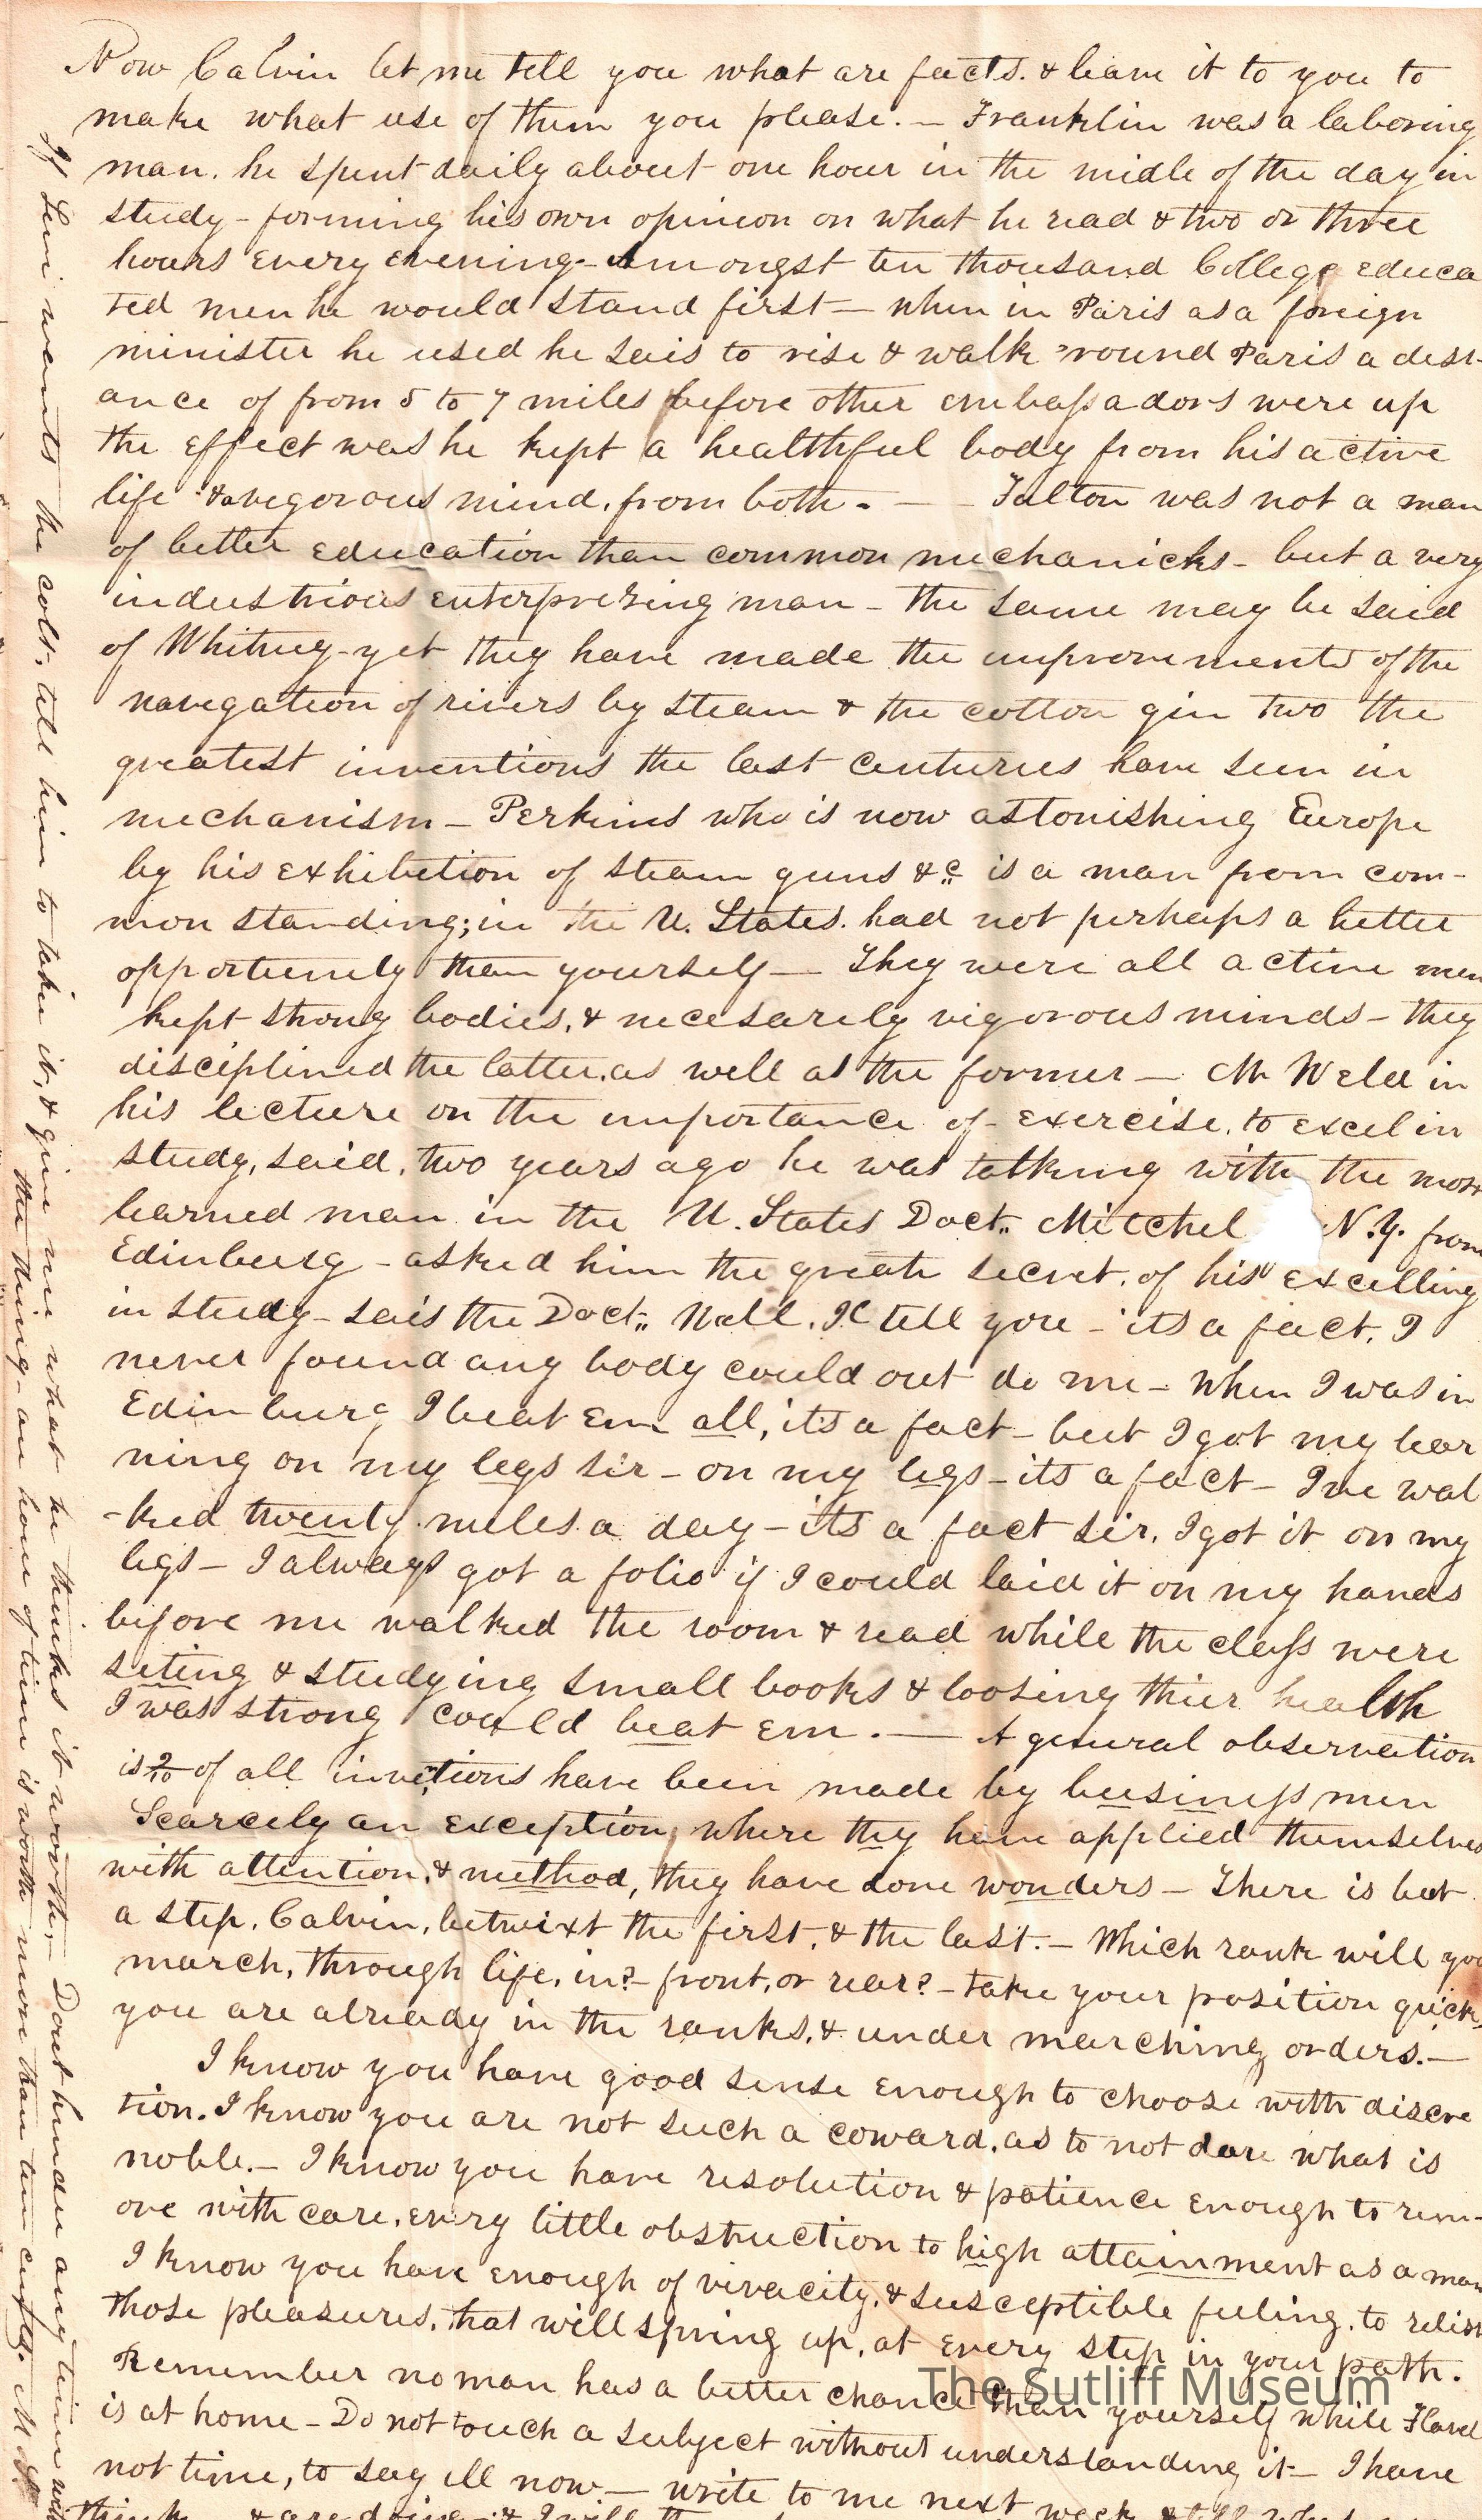 Now Calvin let me tell you what are facts. & leave it to you to
make what use of them you please. — Franklin was a laboring
man. he spent daily about one hour in the midle of the day in
study - forming his own opinion on what he read & two or three
hours every evening - Amongst ten thousand College educa
ted men he would stand first — when in Paris as a foreign
minister he used he sais to rise & walk round Paris a dist-
ance of from 5 to 7 miles before other embassadors were up
the effect was he kept a healthful body from his active
life & a vigorous mind, from both. — Fulton was not a man
of better education than common mechanicks - but a very
industrious enterprising man - the same may be said
of Whitney - yet they have made the improvements of the
navegation of rivers by steam & the cotton gin two the
greatest inventions the last centuries have seen in
mechanism — Perkins who is now astonishing Europe
by his exhibition of steam guns &c is a man from com-
mon standing; in the U. States. had not perhaps a better
opportunity than yourself — They were all active men
kept strong bodies, & necesarily vigorous minds - they
disciplined the latter, as well as the former — Mr Weld in
his lecture on the importance of exercise, to excel in
study, said, two years ago he was talking with the most
learned man in the U. States Doct. Mitchel N.Y. from
Edinburg - asked him the great secret, of his excelling
in study - sais the Doct. Well, Il tell you - its a fact, I
never found any body could out do me - When I was in
Edinburg I beat Em all, its a fact - but I got my lear
ning on my legs sir - on my legs - its a fact - Ive wal
-ked twenty miles a day - its a fact sir, I got it on my
legs - I always got a folio if I could laid it on my hands
before me walked the room & read while the class were
siting & studying small books & loosing thier health
I was strong could beat em. — A general observation
is of all invetions have been made by business men
Scarcely an exception, where they have applied themselves
with attention, & method, they have done wonders - There is but
a step, Calvin, betwixt the first, & the last. - Which rank will you
march, through life, in? - front, or rear? - take your position quick,
you are already in the ranks, & under marching orders. —
I know you have good sense enough to choose with discre
tion. I know you are not such a coward, as to not dare what is
noble. - I know you have resolution & patience enough to rem-
ove with care, every little obstruction to high attainment as a man
I know you have enough of vivacity, & susceptible feeling, to relish
those pleasures, that will spring up, at every step in your path.
Remember no man has a better chance than yourself while
is at home - Do not touch a subject without understanding it - I have
not time, to say all now — write to me next week & tell
think & are doing - & I will
If Levi wants the colt, tell him to take it, & give me what he thinks it worth. - Dont hinder any time with
the thing - an hour of time is worth more than ten
The Sutliff Museum